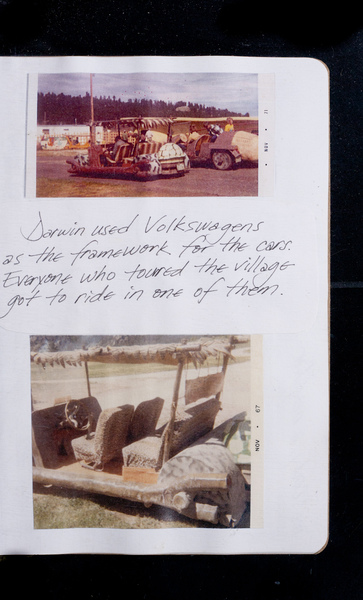 Darwin used Volkswagens
as the framework for the cars.
Everyone who toured the village
got to ride in one of them.
NOV • 67